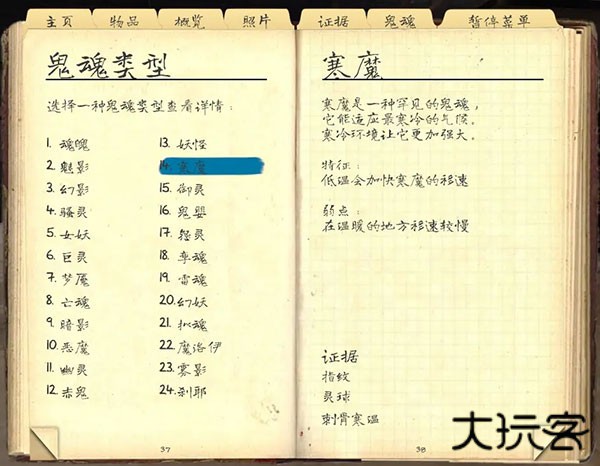 主页 物品 概览 照片 证据 鬼魂 暂停菜单
鬼魂类型
选择一种鬼魂类型查看详情:
1. 魂魄
2. 魅影
3. 幻影
4. 骚灵
5. 女妖
6. 巨灵
7. 梦魇
8. 亡魂
9. 暗影
10. 恶魔
11. 幽灵
12. 赤鬼
13. 妖怪
14. 寒魔
15. 御灵
16. 鬼婴
17. 怨灵
18. 孪魂
19. 雷魂
20. 幻妖
21. 拟魂
22. 魔洛伊
23. 雾影
24. 刹耶
37
寒魔
寒魔是一种罕见的鬼魂,
它能适应最寒冷的气候。
寒冷环境让它更加强大。
特征:
低温会加快寒魔的移速
弱点:
在温暖的地方移速较慢
证据
指纹
灵球
刺骨寒温
38
大玩客